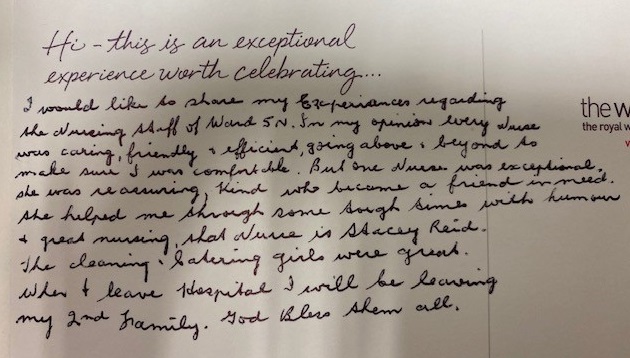 Hi - this is an exceptional
experience worth celebrating...
I would like to share my Experiences regarding
the Nursing Staff of Ward 5N. In my opinion every Nurse
was caring, friendly & efficient, going above & beyond to
make sure I was comfortable. But one Nurse was exceptional.
she was reassuring, Kind who became a friend in need.
she helped me through some tough times with humour
& great nursing, that Nurse is Stacey Reid.
The cleaning & catering girls were great.
When I leave Hospital I will be leaving
my 2nd Family. God Bless them all.
the w
the royal w